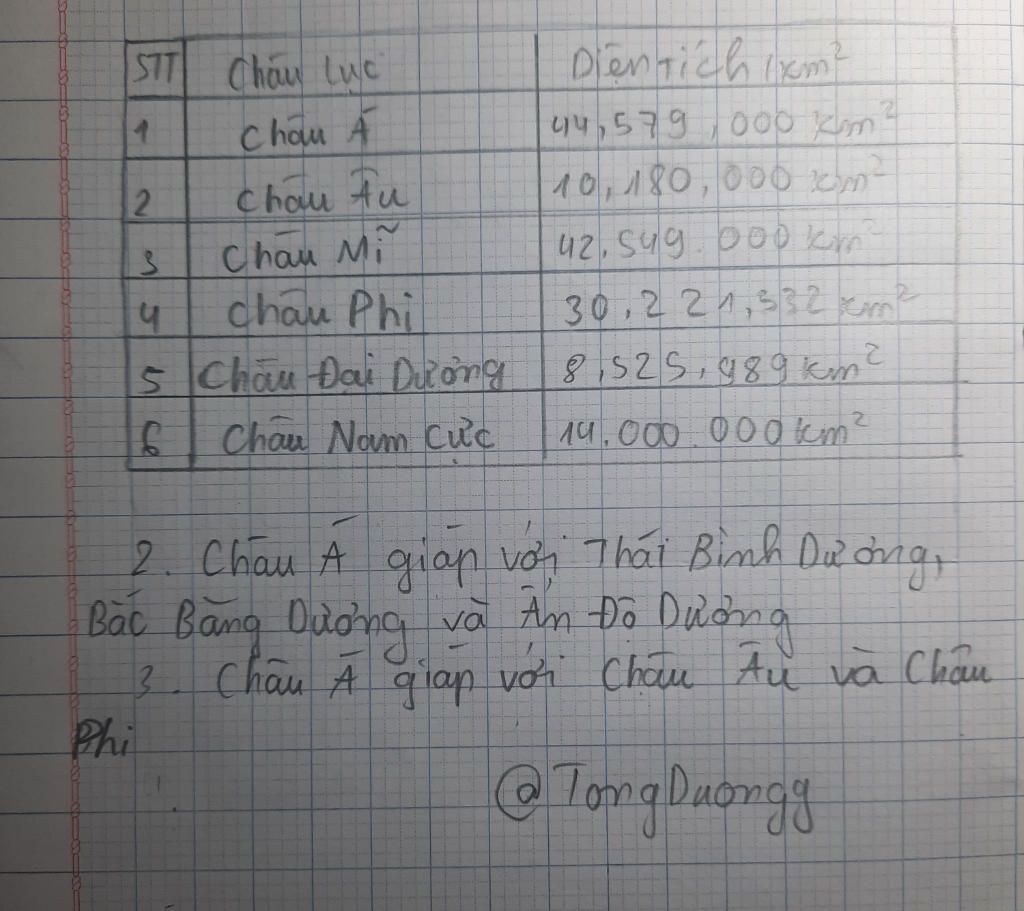 STT Châu lục Diện tích /km²
1 Châu Á 44,579,000 km²
2 Châu Âu 10,180,000 km²
3 Châu Mĩ 42.549.000 km²
4 Châu Phi 30,221,532 km²
5 Châu Đại Dương 8,525,989 km²
6 Châu Nam Cực 14.000.000 km²
2. Châu Á giáp với Thái Bình Dương,
Bắc Băng Dương và Ấn Độ Dương
3. Châu Á giáp với Châu Âu và Châu
Phi
@TongDuongg